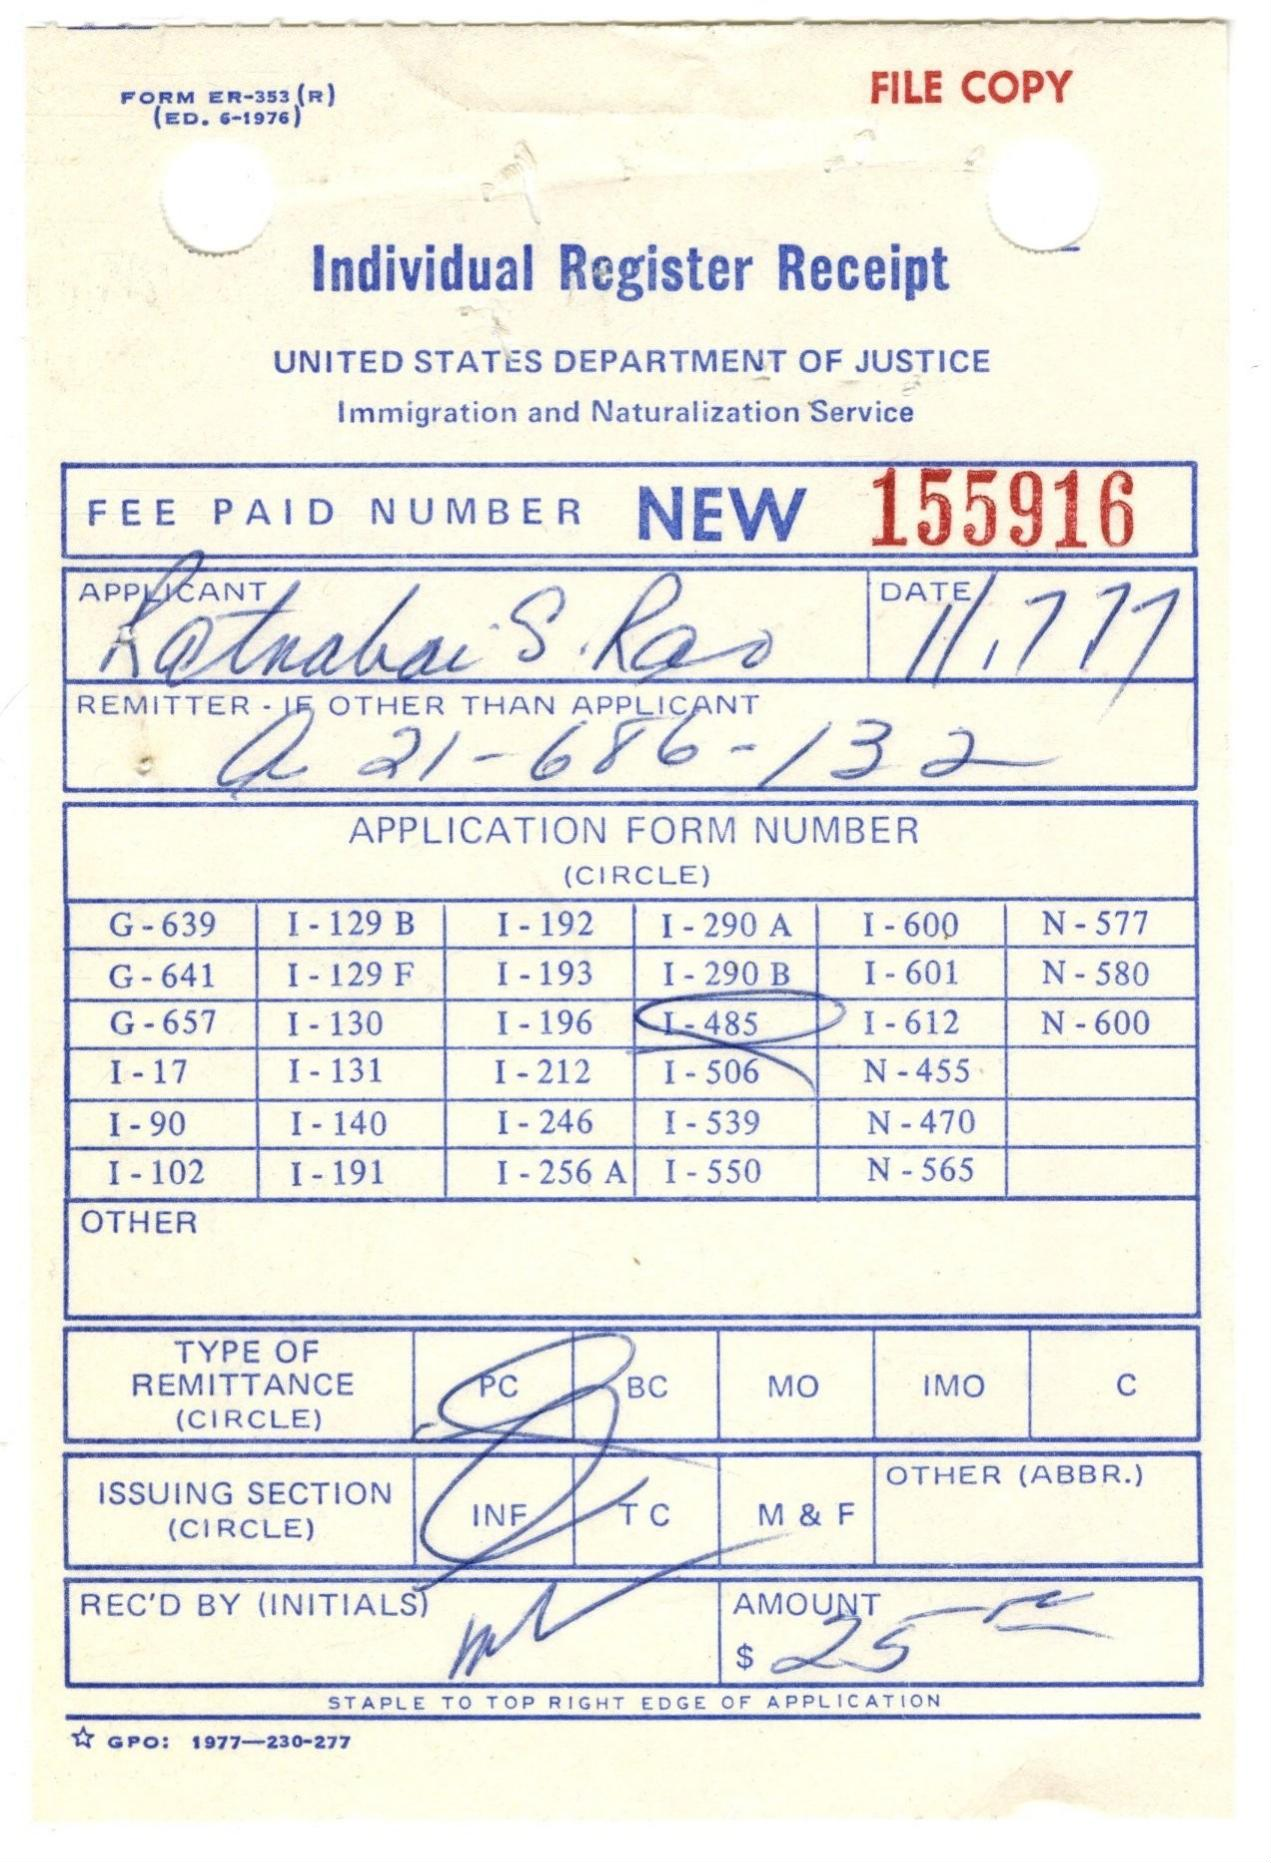 FORM ER-353 (R)
(ED. 6-1976)
FILE COPY
Individual Register Receipt
UNITED STATES DEPARTMENT OF JUSTICE
Immigration and Naturalization Service
FEE PAID NUMBER NEW 155916
APPLICANT DATE
Ratnabai S. Rao 11.777
REMITTER - IF OTHER THAN APPLICANT
A 21-686-132
APPLICATION FORM NUMBER
(CIRCLE)
G-639 I-129 B I-192 I-290 A I-600 N-577
G-641 I-129 F I-193 I-290 B I-601 N-580
G-657 I-130 I-196 I-485 I-612 N-600
I-17 I-131 I-212 I-506 N-455
I-90 I-140 I-246 I-539 N-470
I-102 I-191 I-256 A I-550 N-565
OTHER
TYPE OF
REMITTANCE
(CIRCLE)
PC BC MO IMO C
ISSUING SECTION
(CIRCLE)
INF T C M & F OTHER (ABBR.)
REC'D BY (INITIALS) AMOUNT
$ 25
STAPLE TO TOP RIGHT EDGE OF APPLICATION
☆ GPO: 1977—230-277